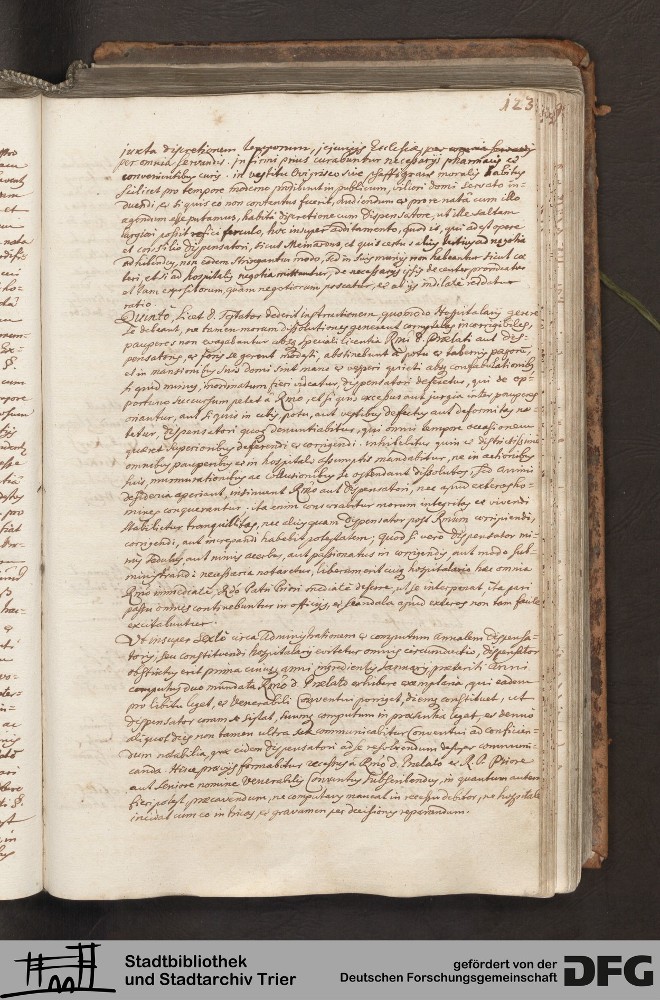 123
juxta discretionem temporum, jejunijs Ecclesiæ, per omnia
per omnia servandis. infirmi prius curabuntur necessarijs pharmacis et
convenientibus curis. in vestitu
scilicet pro tempore moderno prodibunt in publicum, viliori domi
duendi, et si quis eo non contentus fuerit, audiendum et pro re nata cum illo
agendum esse putamus, habita discretione cum dispensatore, ut ille saltem
largiori possit refici ferculo, hoc insuper additamento, quod is, qui adest opere
et consilio dispensatori, sicut et quis certus alius
adhibendus, non eodem stringantur modo, sed in suis munijs non habeantur sicut cæ-
teri, etsi ad hospitalis negotia mittantur, de necessarijs ipsis decenter provideatur
et tam expositorum, quam negotiorum poscatur, et ab ijs reddatur
ratio.
Quinto, licet d. Testator dederit instructionem, quomodo Hospitalarij gerere
se debeant, ne tamen morum dissolutiones generent incorrigibiles,
pauperes non evagabuntur absq speciali licentia Rmi d. Prælati aut dis-
pensatoris, et foris se gerent modesti, abstinebunt a potu et tabernis pagorum,
et in mansionibus suis domi sint mane et vesperi quieti absq confabulationibus
si quid minus, inordinatum fieri videatur, dispensatori defectus, qui de op-
portuno succursum petet a Rmo, et si quis excessus aut jurgia inter pauperes
oriantur, aut si quis in cibis, potu, aut vestibus defectus aut deformitas no-
tetur, dispensatori quoq denuntiabitur, qui omni tempore occasionem
quæret Superioribus deferendi et corrigendi. inhibebitur quin et districtissime
omnibus pauperibus in hospitali assumptis mandabitur, ne in actionibus
suis, murmurationibus ac se ostendant dissolutos, sed animi
desideria aperiant, insinuent Rmo aut dispensatori, nec apud exteros ho-
mines conquerantur. ita enim conservabitur morum integritas et vivendi
stabilietur tranquillitas, nec alius quam dispensator post Rmum corripiendi,
corrigendi, aut increpandi habebit potestatem; quod si vero dispensator ni-
mis sedulus aut nimis acerbus, aut passionatus in corrigendis, aut modo sub-
ministrandi necessaria notaretur, liberum erit cuiq hospitalario hæc omnia
Rmo immediate, Rdo Patri Priori mediate deferre, ut se interponat, ita pari
passu omnes continebuntur in officijs, et scandala apud exteros non tam facile
excitabuntur.
Ut insuper sexto circa administrationem et computum annalem dispensa-
toris, seu constituendi hospitalarij evitetur omnis circumductio, dispensator
obstrictus erit prima cujusq anni ingredientis Januarij præteriti anni
computus duo mundata Rmo d. Prælato exhibere exemplaria, qui eadem
pro libitu leget, et venerabili Conventui porriget, diemq constituet, ut
dispensator coram se sistat, suumq computum in præsentia legat, et denuo
aliquot dies non tamen ultra sex communicabitur Conventui ad conficien-
dum notabilia, quæ eidem dispensatori ad se resolvendum desuper communi-
canda. Hisce prævijs formabitur recessus a Rmo d. Prælato et R. P. Priore
aut Seniore nomine venerabilis Conventus subscribendus, in quantum autem
fieri potest præcavendum, ne computans maneat in recessu debitor, ne hospitale
incidat cum eo in tricas, et gravamen per decisiones reparandum.
Stadtbibliothek
und Stadtarchiv Trier
gefördert von der
Deutschen Forschungsgemeinschaft
DFG